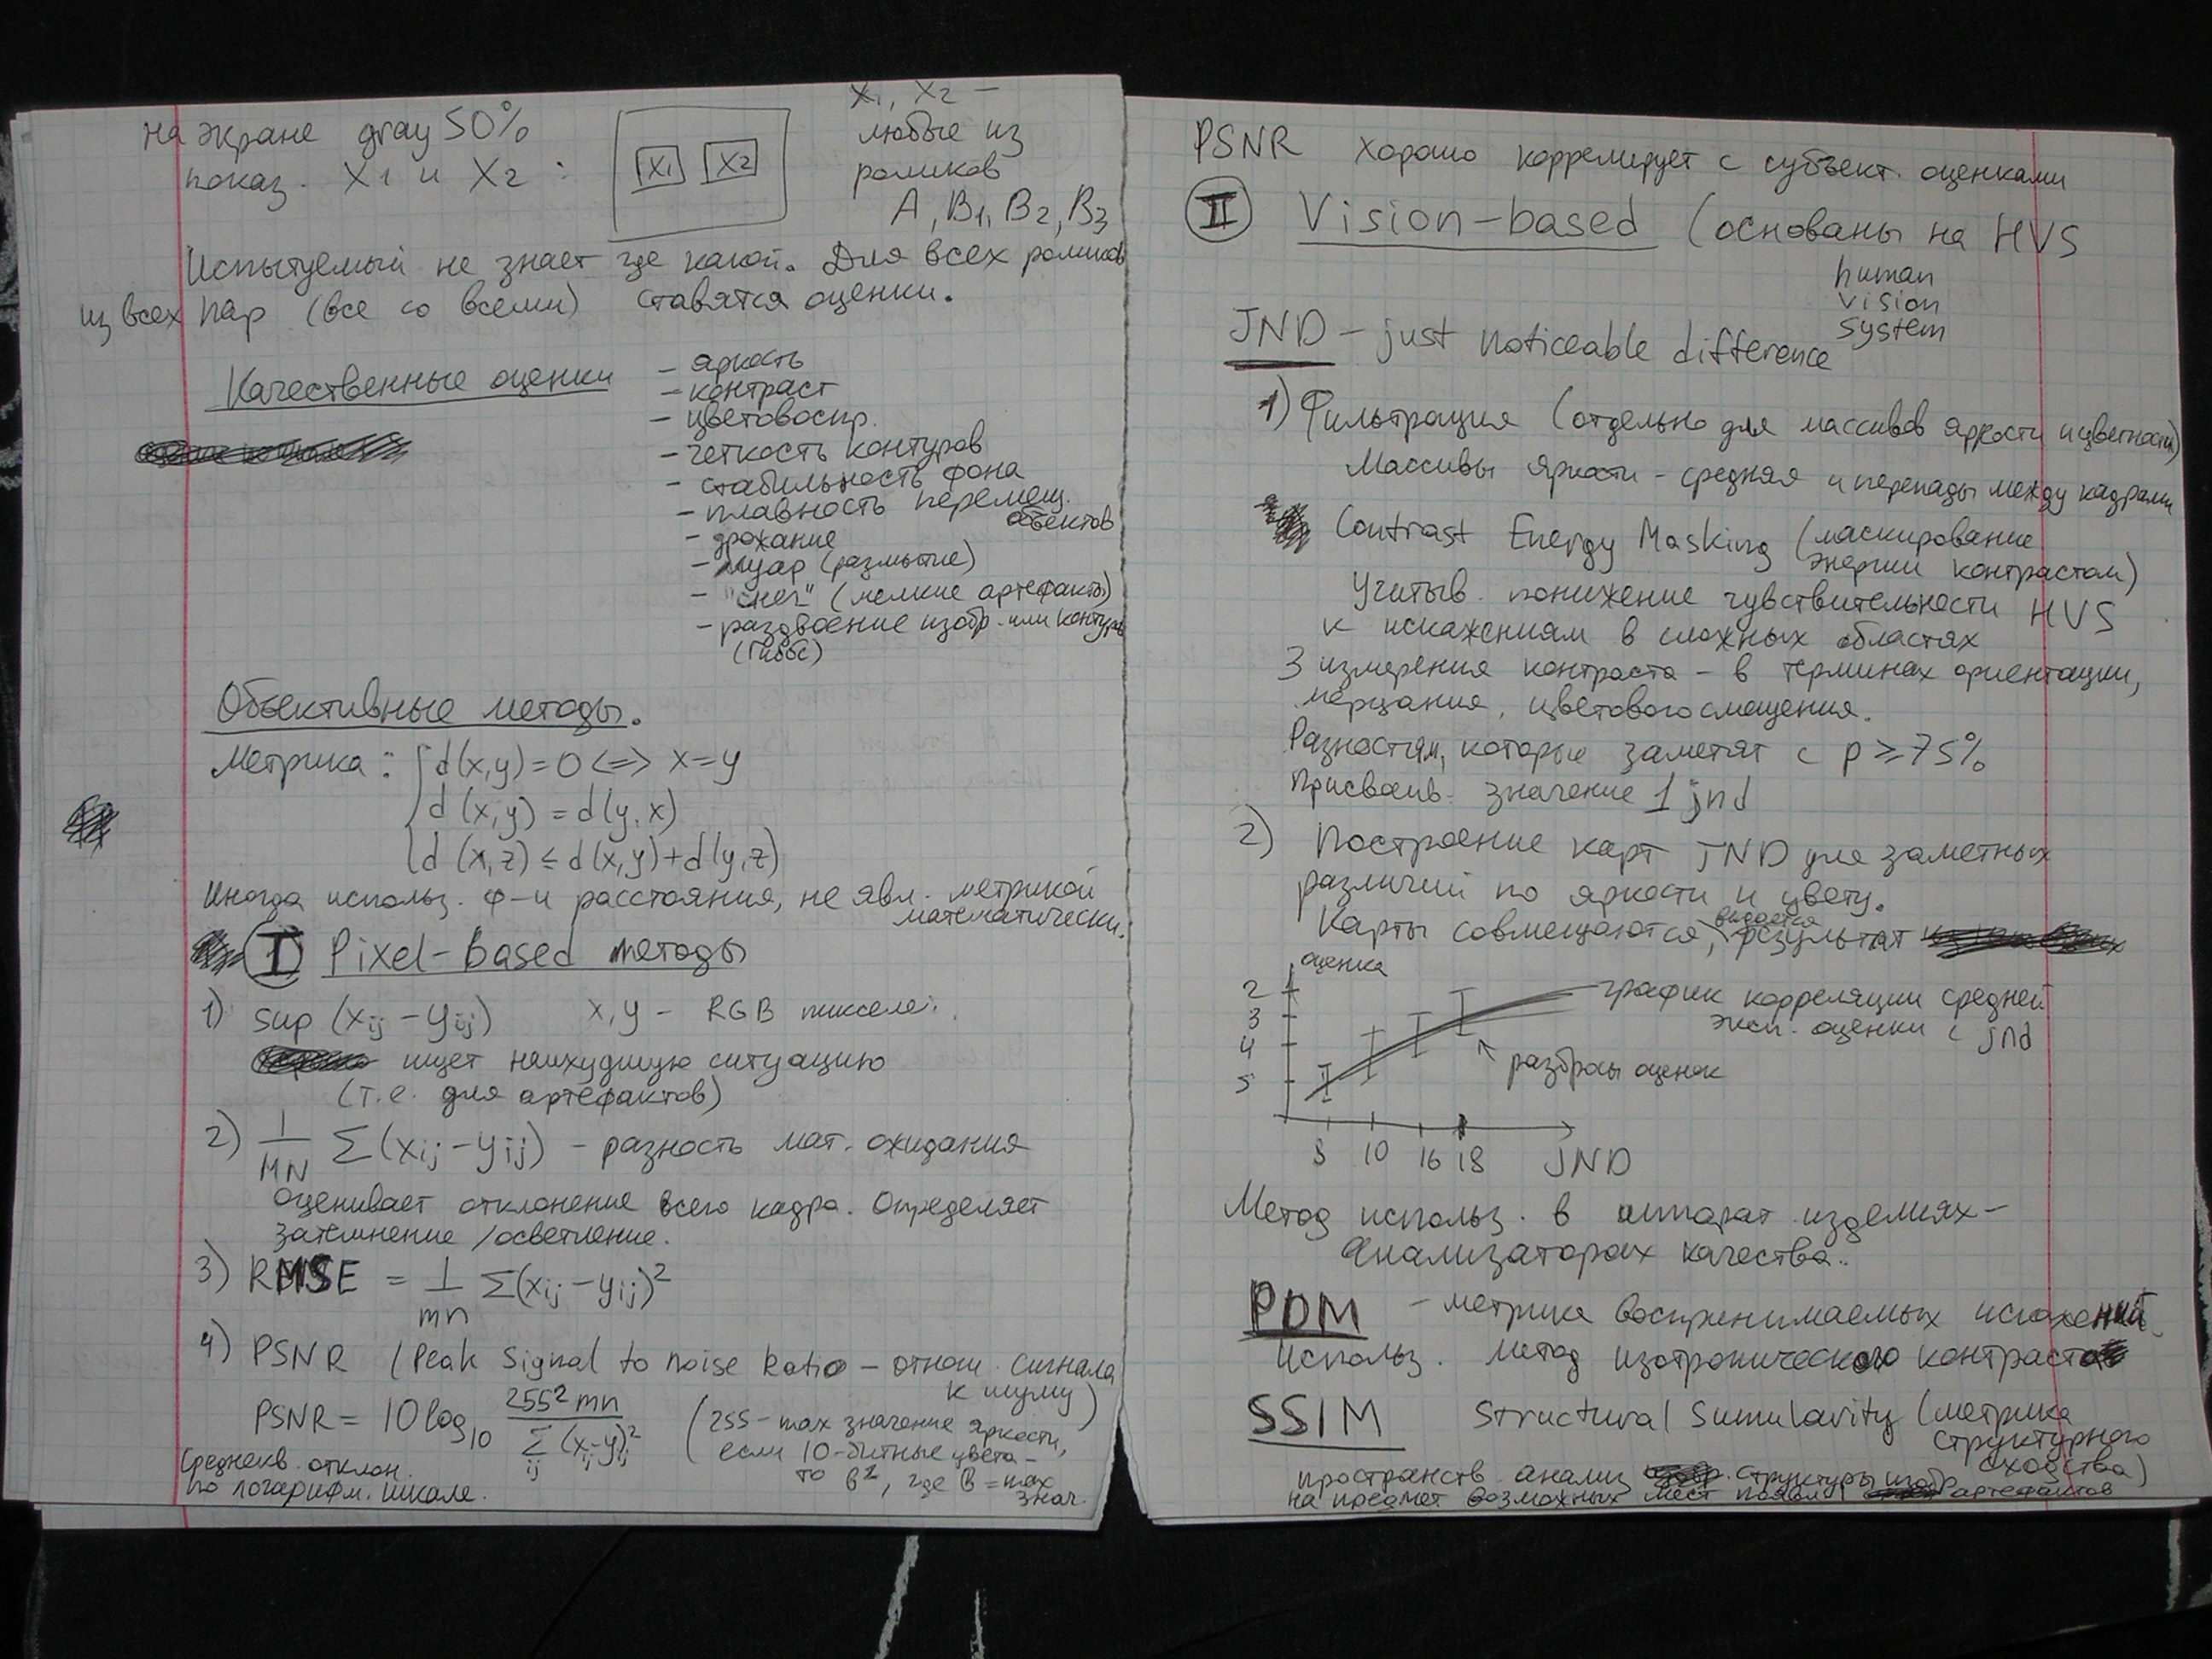 на экране gray 50%
показ. X1 и X2 :
X1 X2
X1, X2 —
любые из
роликов
A, B1, B2, B3
Испытуемый не знает где какой. Для всех роликов
из всех пар (все со всеми) ставятся оценки.
Качественные оценки
- яркость
- контраст
- цветовоспр.
- четкость контуров
- стабильность фона
- плавность перемещ.
объектов
- дрожание
- муар (размытие)
- "снег" (мелкие артефакты)
- раздвоение изобр. или контура
(Гиббс)
Объективные методы.
Метрика : { d(x,y)=0 <=> x=y
d(x,y) = d(y,x)
d(x,z) ≤ d(x,y)+d(y,z)
Иногда использ. ф-и расстояния, не явл. метрикой
математически.
I Pixel-based методы
1) sup (xij - yij) x,y - RGB пикселей.
ищет наихудшую ситуацию
(т.е. для артефактов)
2) 1/MN Σ(xij - yij) - разность мат. ожидания
оценивает отклонение всего кадра. Определяет
затемнение /осветление.
3) RMSE = 1/mn Σ(xij - yij)²
4) PSNR (Peak Signal to noise Ratio - отнош. сигнала
к шуму)
PSNR = 10 log10 255² mn / Σij (xij-yij)²
(255 - max значение яркости,
если 10-битные цвета -
то b², где b = max
знач.
Среднекв. отклон.
по логарифм. шкале.
PSNR хорошо коррелирует с субъект. оценками
II Vision-based (основаны на HVS
human
vision
system
JND - just noticeable difference
1) Фильтрация (отдельно для массивов яркости и цветности)
Массивы яркости - средняя и перепады между кадрами
Contrast Energy Masking (маскирование
энергии контрастом)
Учитыв. понижение чувствительности HVS
к искажениям в сложных областях
3 измерения контраста - в терминах ориентации,
мерцания, цветового смещения.
Разностям, которые заметят с p ≥ 75%
присваив. значение 1 jnd
2) Построение карт JND для заметных
различий по яркости и цвету.
Карты совмещаются, выдается результат
оценка
2
3
4
5
график корреляции средней
эксп. оценки с jnd
разбросы оценок
8 10 16 18 JND
Метод использ. в аппарат. изделиях -
анализаторах качества.
PDM - метрика воспринимаемых искажений.
Использ. метод изотропического контраста
SSIM Structural Sumularity (метрика
структурного
сходства)
пространств. анализ структуры изобр.
на предмет возможных мест появл. артефактов